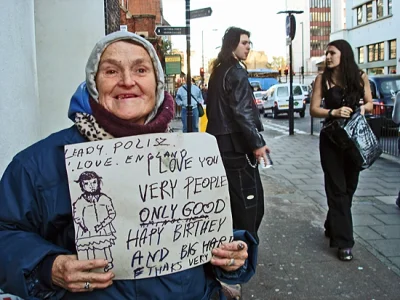 LEADY. POLISZ
LOVE. ENGLAND
I LOVE YOU
VERY PEOPLE
ONLY GOOD
HAPY BIRTHEY
AND BIG HARD
THAKS VERY